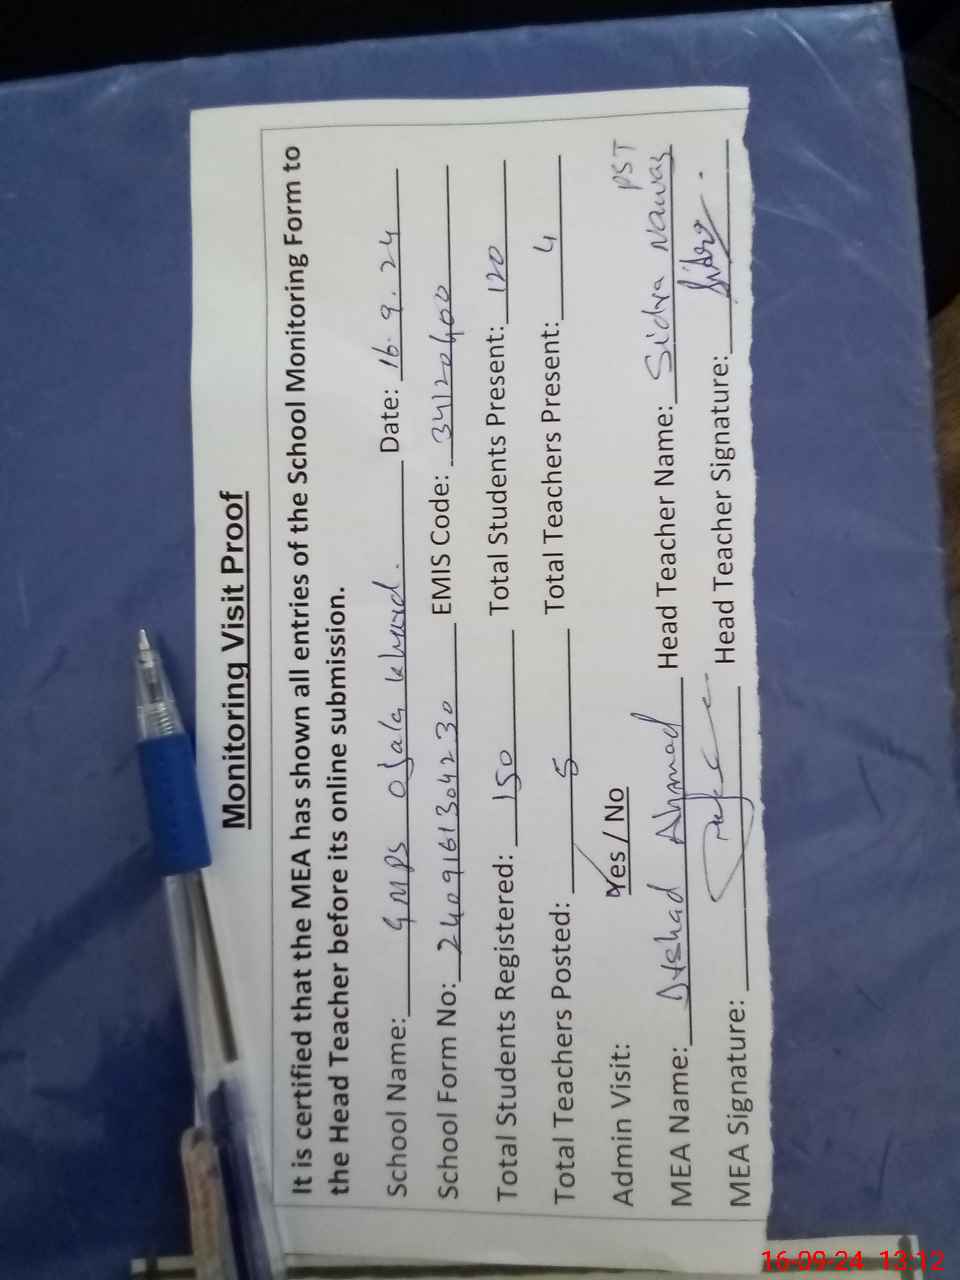 Monitoring Visit Proof
It is certified that the MEA has shown all entries of the School Monitoring Form to
the Head Teacher before its online submission.
School Name: GMPS Ojala Khurd. Date: 16.9.24
School Form No: 2409161304230 EMIS Code: 34120400
Total Students Registered: 150 Total Students Present: 120
Total Teachers Posted: 5 Total Teachers Present: 4
Admin Visit: Yes / No
PST
MEA Name: Arshad Ahmad Head Teacher Name: Sidra Nawaz
MEA Signature: Head Teacher Signature: Sidra
16-09-24 13:12